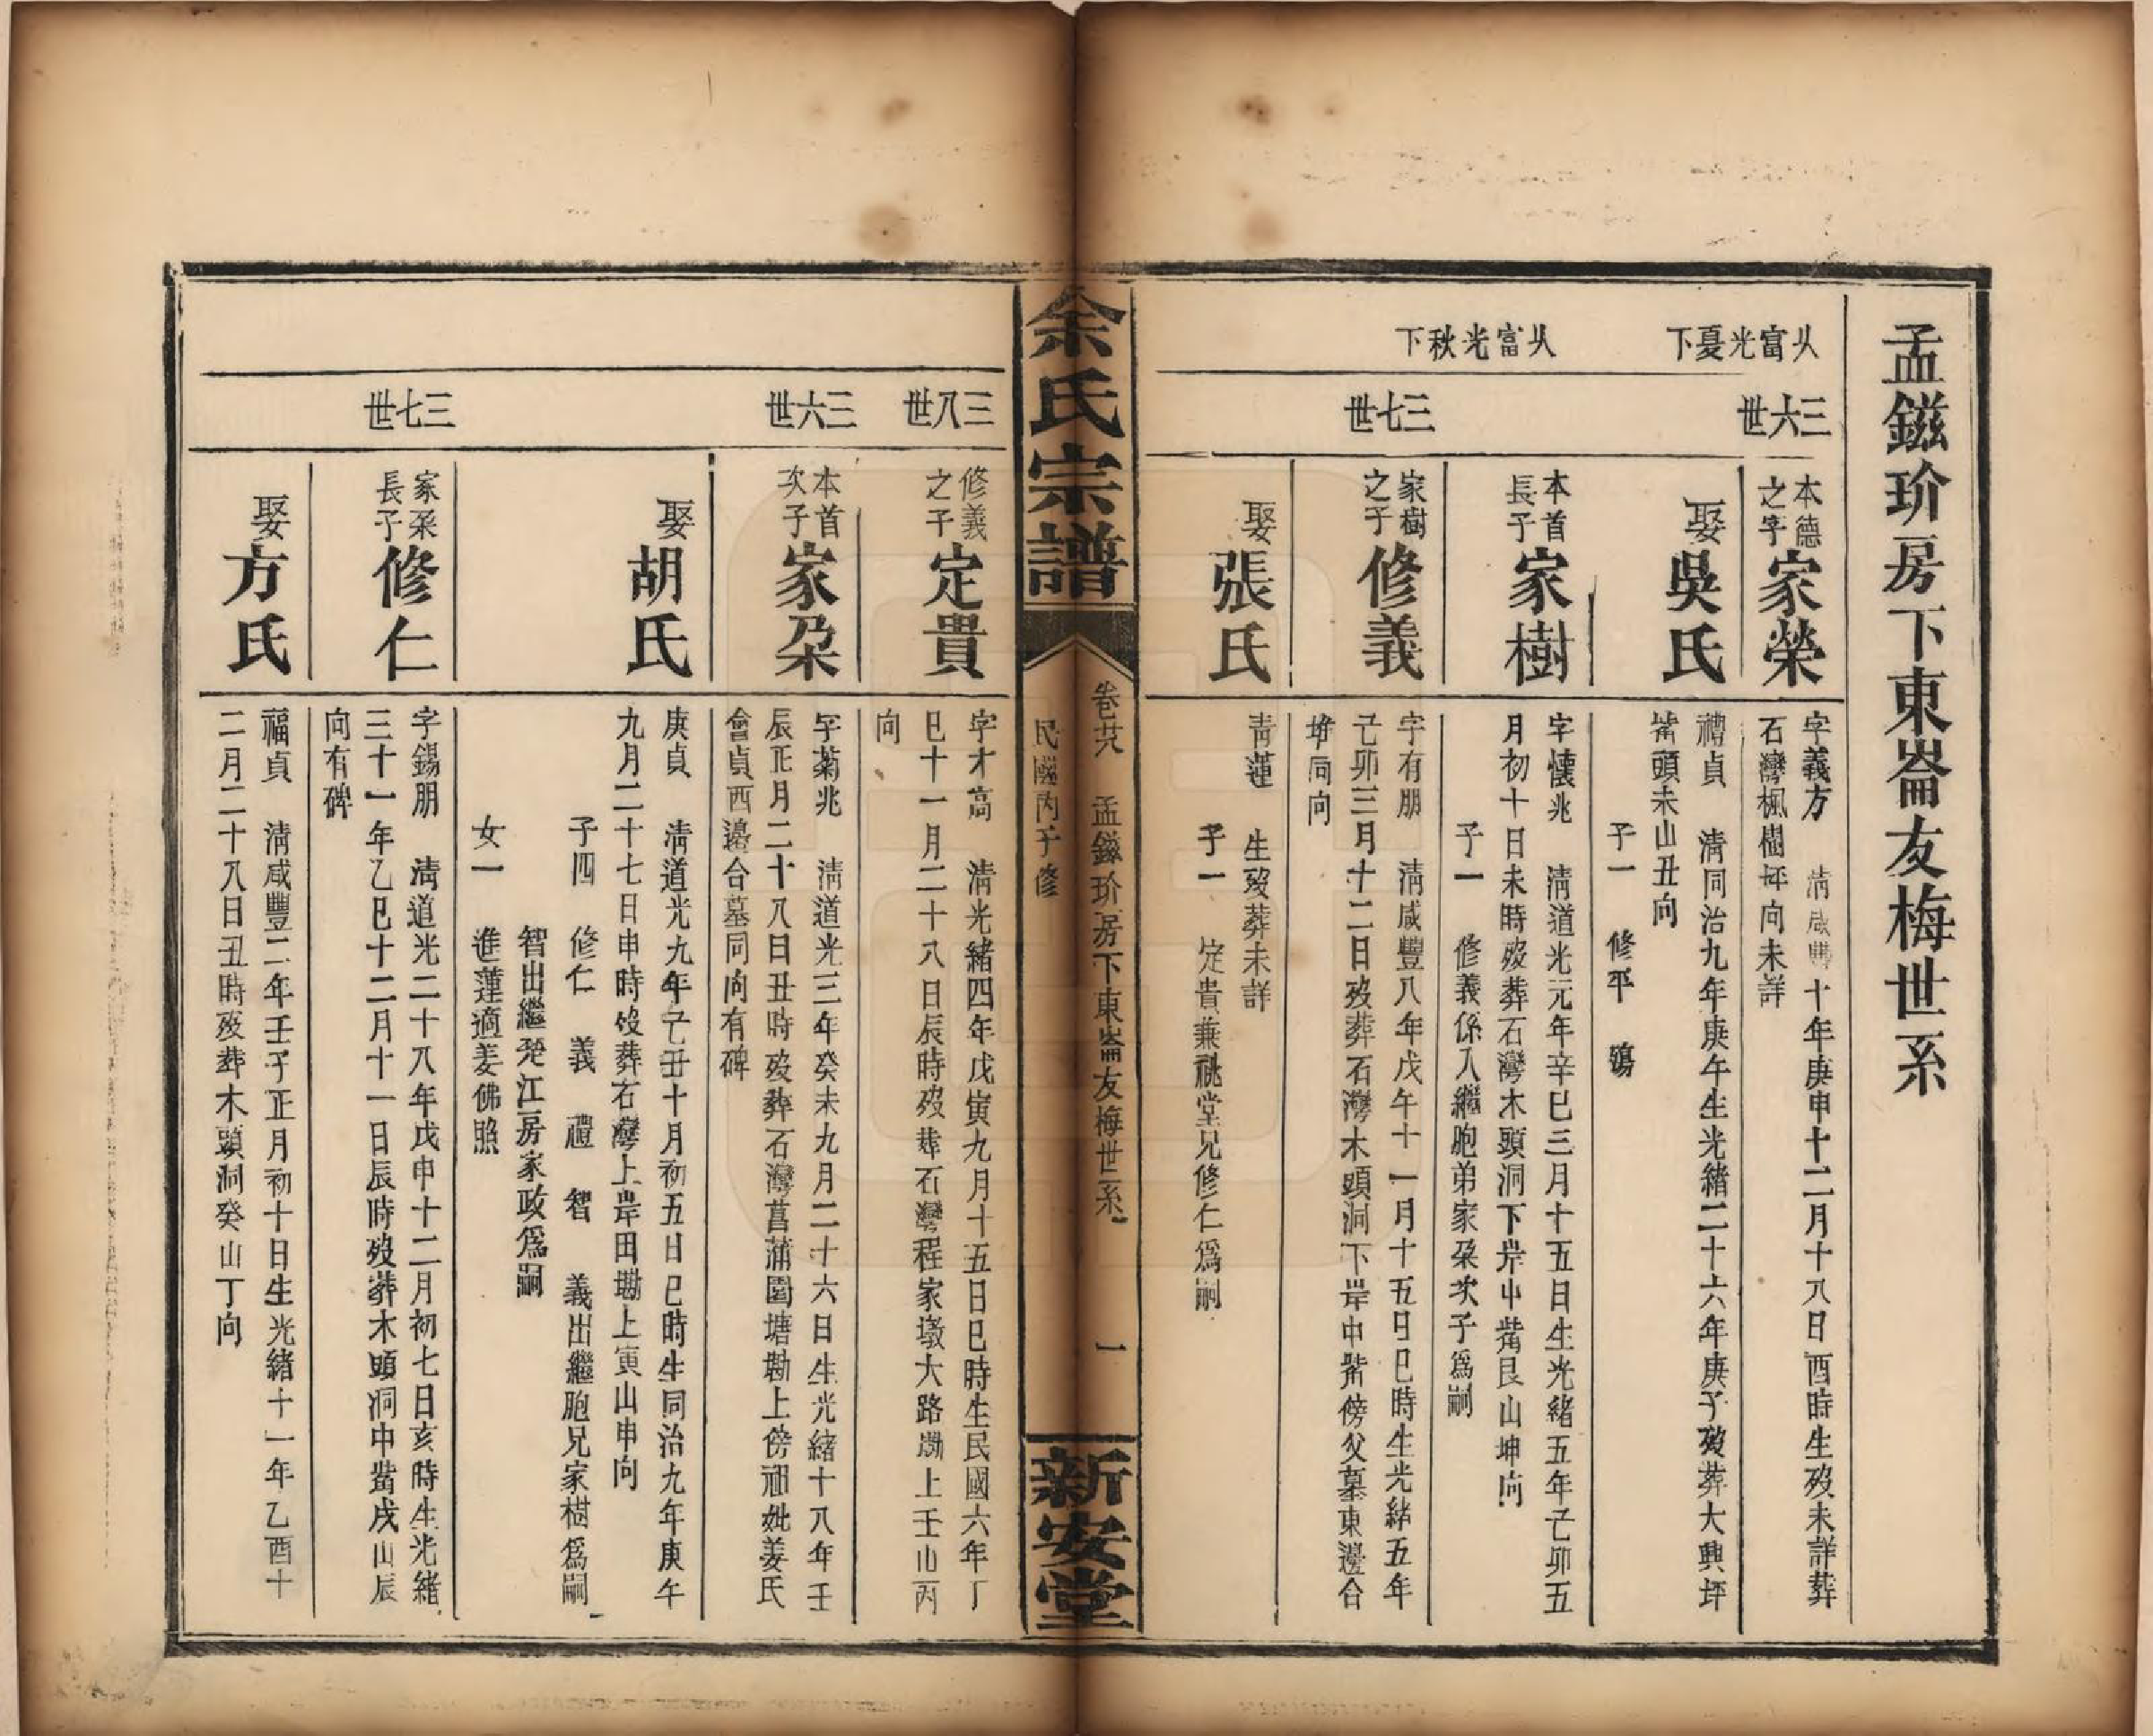 孟鎡玠房下東崙友梅世系
从富光夏下
三六世
本德
之字
家榮
字義方　清咸豐十年庚申十二月十八日酉時生歿未詳葬
石灣楓樹坪向未詳
娶吳氏
禮貞　清同治九年庚午生光緒二十六年庚子歿葬大興坪
嵴頭未山丑向
子一　修平　殤
从富光秋下
本首
長子
家樹
字懷兆　清道光元年辛巳三月十五日生光緒五年己卯五
月初十日未時歿葬石灣木頭洞下岸中嵴艮山坤向
子一　修義係入繼胞弟家朶次子爲嗣
三七世
家樹
之子
修義
字有朋　清咸豐八年戊午十一月十五日巳時生光緒五年
己卯三月十二日歿葬石灣木頭洞下岸中嵴傍父墓東邊合
塚同向
娶張氏
青蓮　生歿葬未詳
子一　定貴兼祧堂兄修仁爲嗣
余氏宗譜
卷廿八　孟鎡玠房下東崙友梅世系　一
民國丙子修
新安堂
三八世
修義
之子
定貴
字才高　清光緒四年戊寅九月十五日巳時生民國六年丁
巳十一月二十八日辰時歿葬石灣程家墩大路墈上壬山丙
向
三六世
本首
次子
家朶
字菊兆　清道光三年癸未九月二十六日生光緒十八年壬
辰正月二十八日丑時歿葬石灣菖蒲園塘墈上傍祖妣姜氏
會貞西邊合墓同向有碑
娶胡氏
庚貞　清道光九年己丑十月初五日巳時生同治九年庚午
九月二十七日申時歿葬石灣上岸田墈上寅山申向
子四　修仁　義　禮　智　義出繼胞兄家樹爲嗣
智出繼珫江房家政爲嗣
女一　進蓮適姜佛照
三七世
家朶
長子
修仁
字錫朋　清道光二十八年戊申十二月初七日亥時生光緒
三十一年乙巳十二月十一日辰時歿葬木頭洞中嵴戌山辰
向有碑
娶方氏
福貞　清咸豐二年壬子正月初十日生光緒十一年乙酉十
二月二十八日丑時歿葬木頭洞癸山丁向